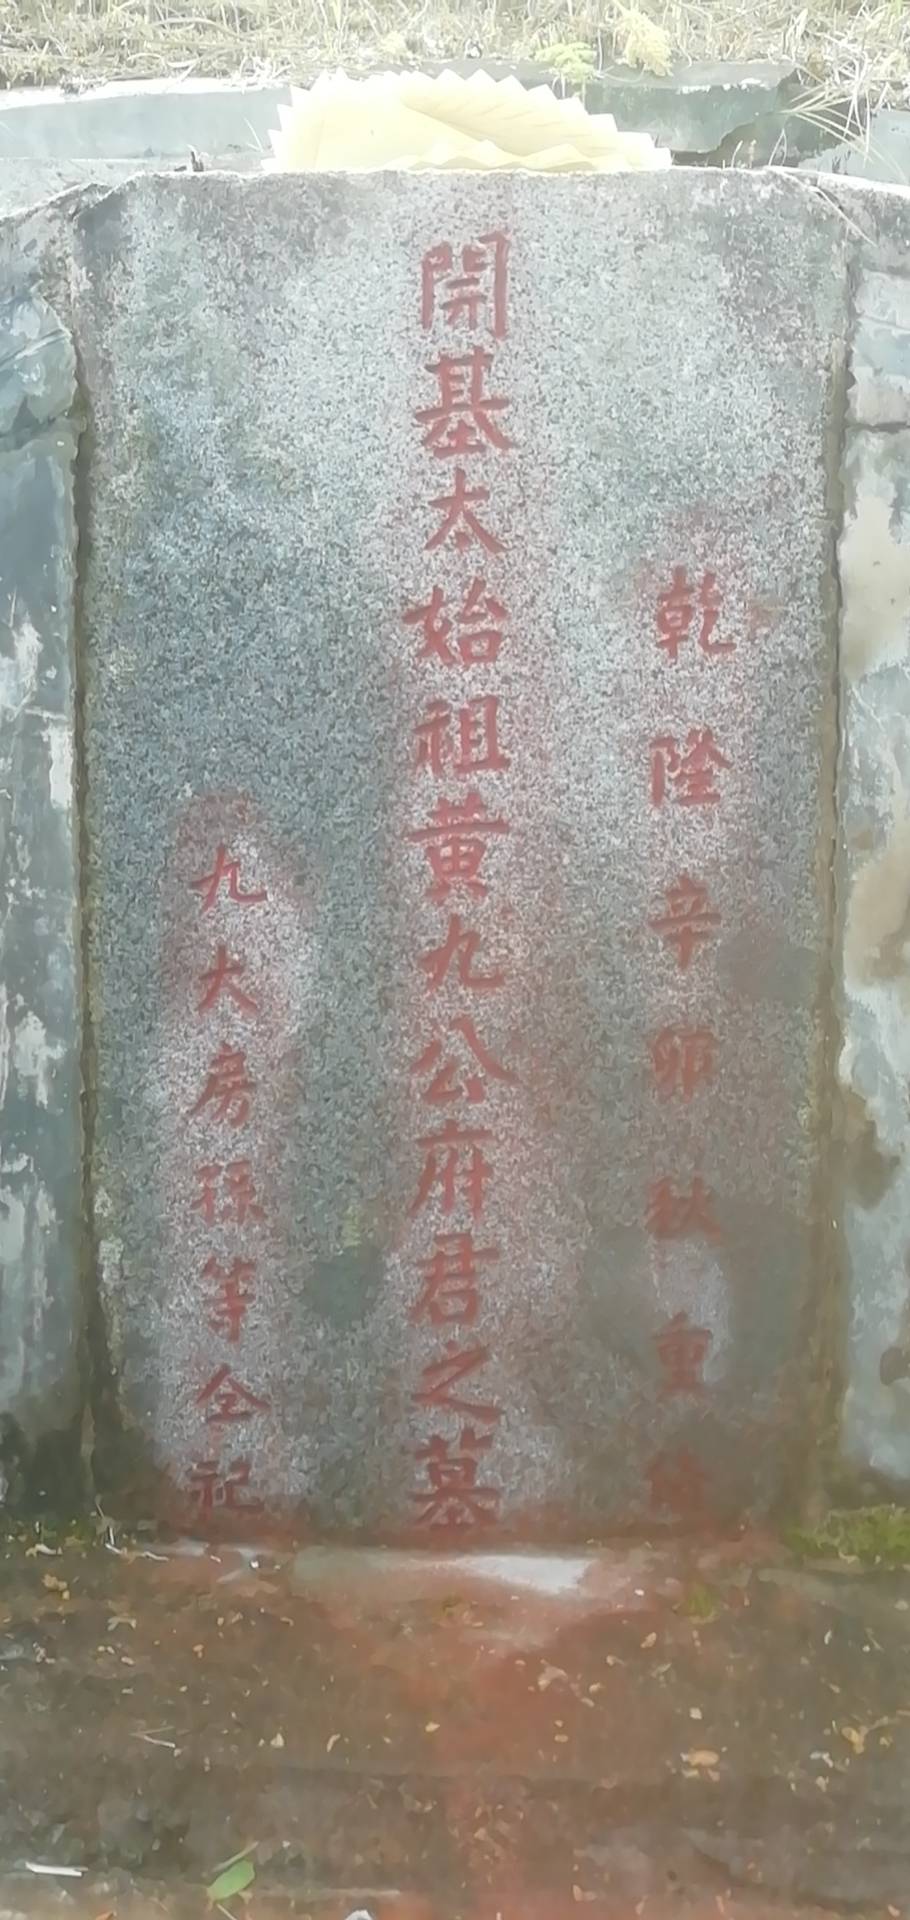 乾隆辛卯秋重修
開基太始祖黃九公府君之墓
九大房孫等仝記